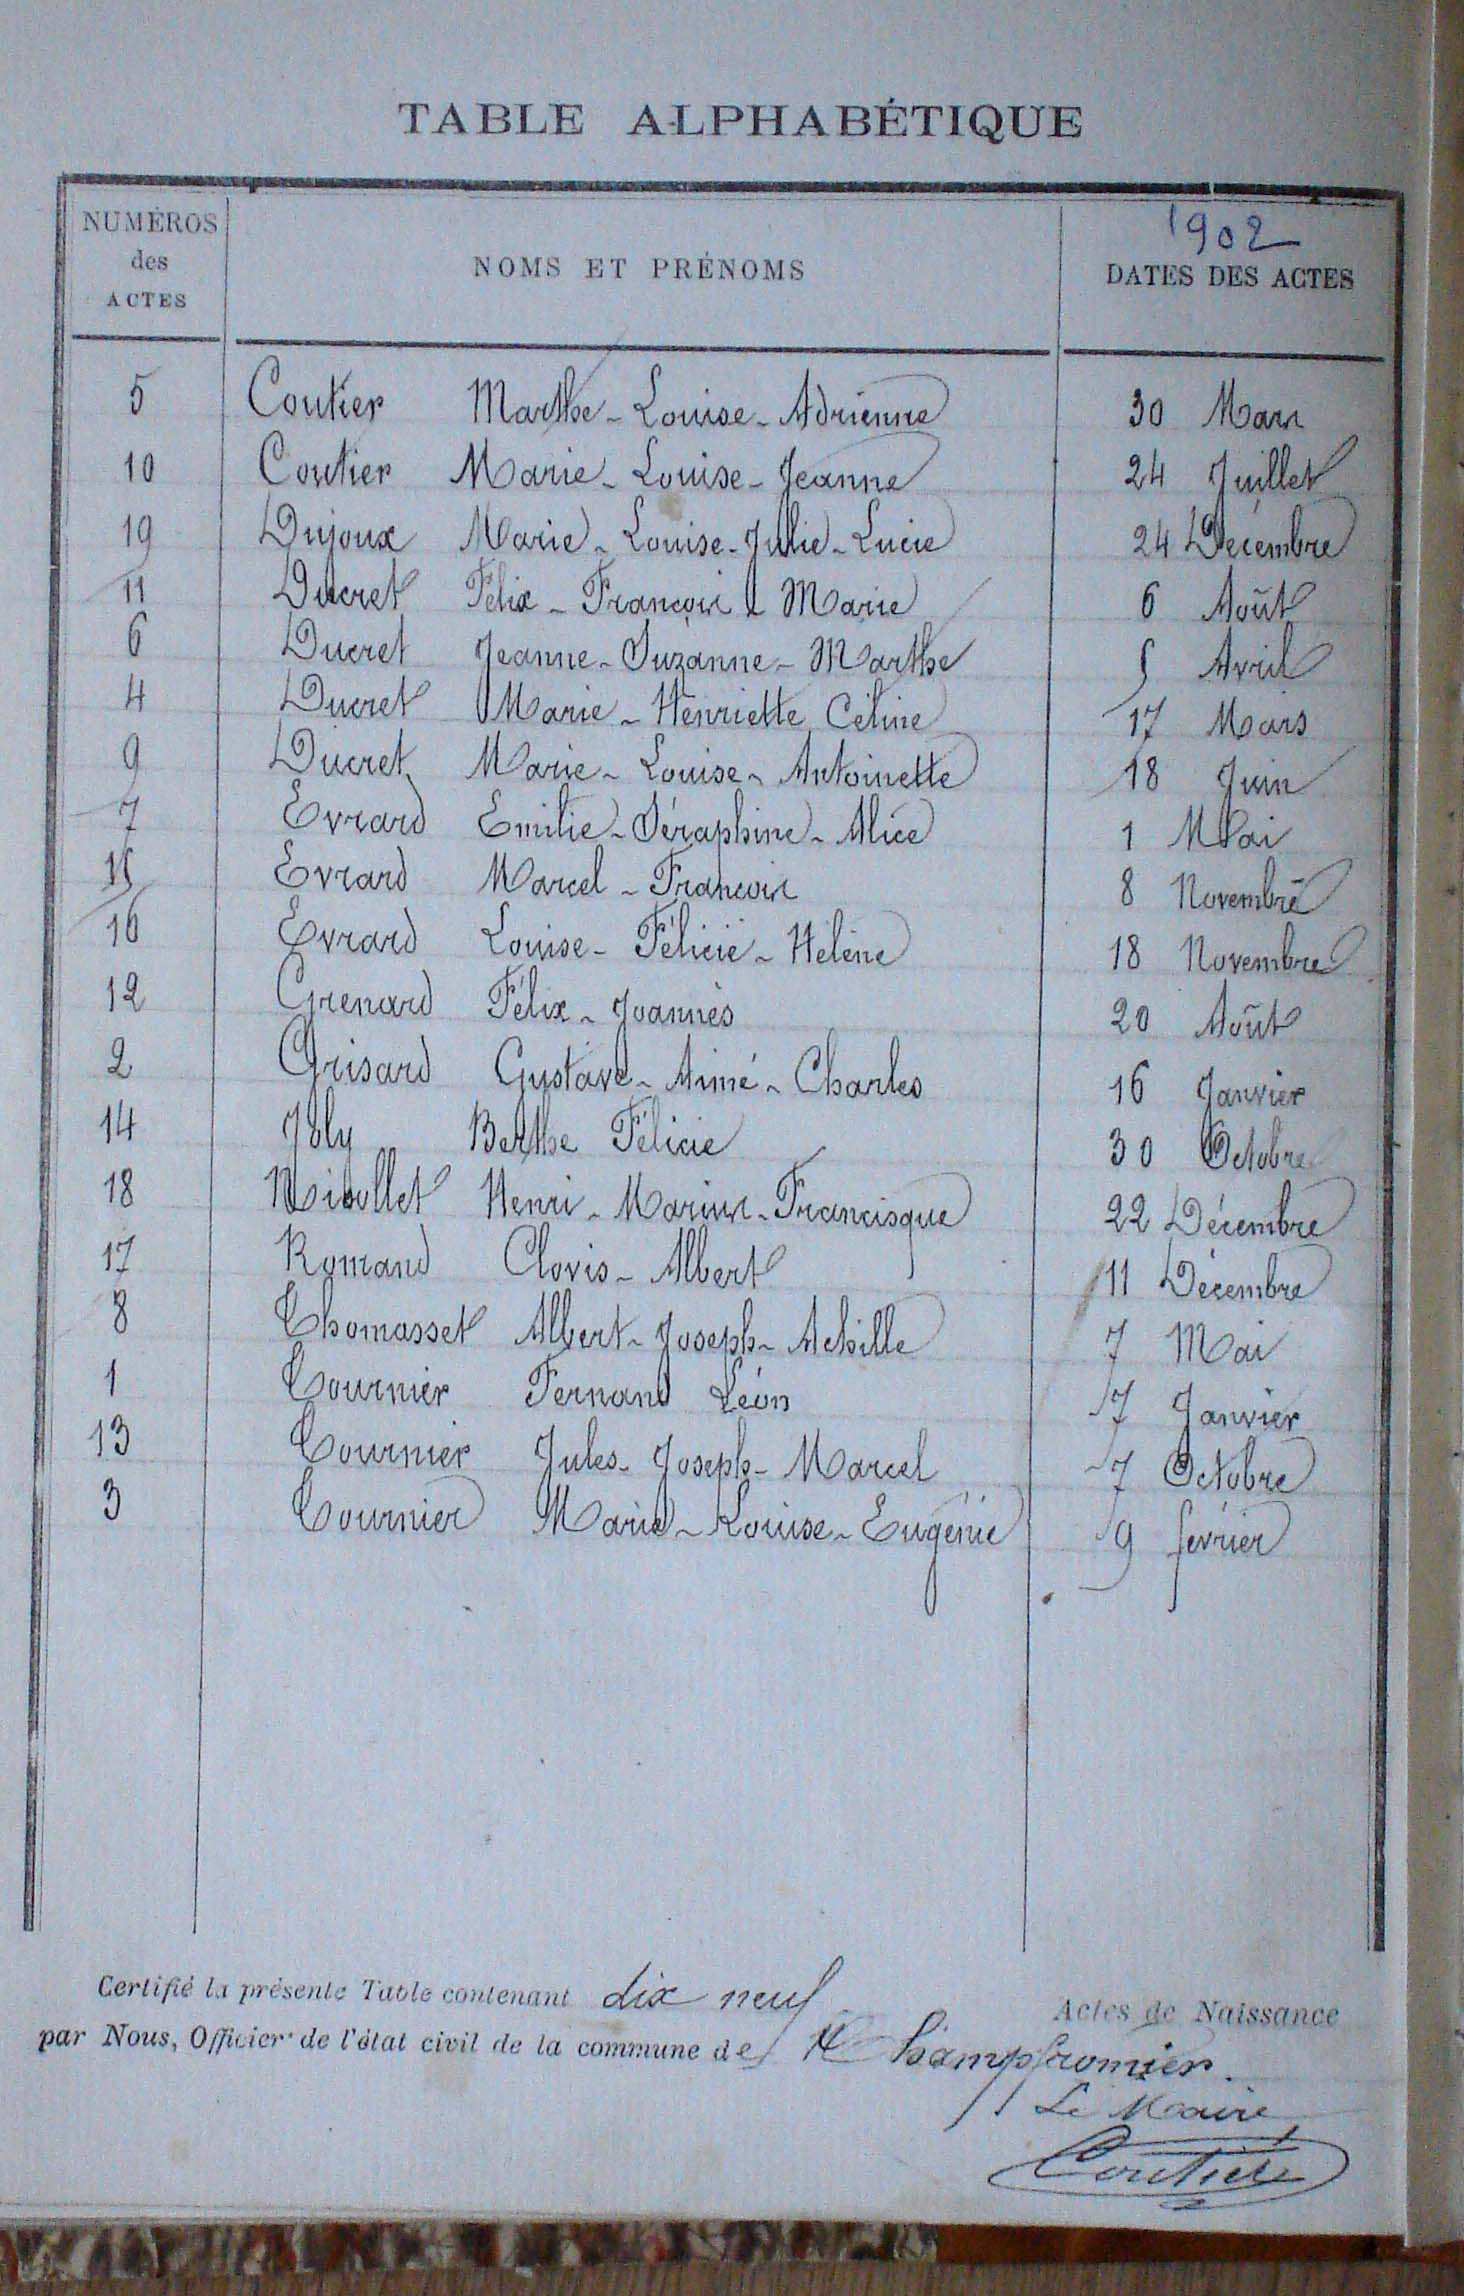 TABLE ALPHABÉTIQUE
NUMÉROS des ACTES
NOMS ET PRÉNOMS
1902
DATES DES ACTES
5 Coutier Marthe - Louise - Adrienne 30 Mars
10 Coutier Marie - Louise - Jeanne 24 Juillet
19 Dujoux Marie - Louise - Julie - Lucie 24 Décembre
11 Ducret Félix - François - Marie 6 Août
6 Ducret Jeanne - Suzanne - Marthe 5 Avril
4 Ducret Marie - Henriette Céline 17 Mars
9 Ducret Marie - Louise - Antoinette 18 Juin
7 Evrard Emilie - Séraphine - Alice 1 Mai
15 Evrard Marcel - François 8 Novembre
16 Evrard Louise - Félicie - Hélène 18 Novembre
12 Grenard Félix - Joannès 20 Août
2 Grisard Gustave - Aimé - Charles 16 Janvier
14 Joly Berthe Félicie 30 Octobre
18 Nicollet Henri - Marius - Francisque 22 Décembre
17 Romand Clovis - Albert 11 Décembre
8 Thomasset Albert - Joseph - Achille 7 Mai
1 Tournier Fernand Léon 7 Janvier
13 Tournier Jules - Joseph - Marcel 7 Octobre
3 Tournier Marie - Louise - Eugénie 9 février
Certifié la présente Table contenant dix neuf Actes de Naissance
par Nous, Officier de l'état civil de la commune de Champfromier.
Le Maire
Coutier